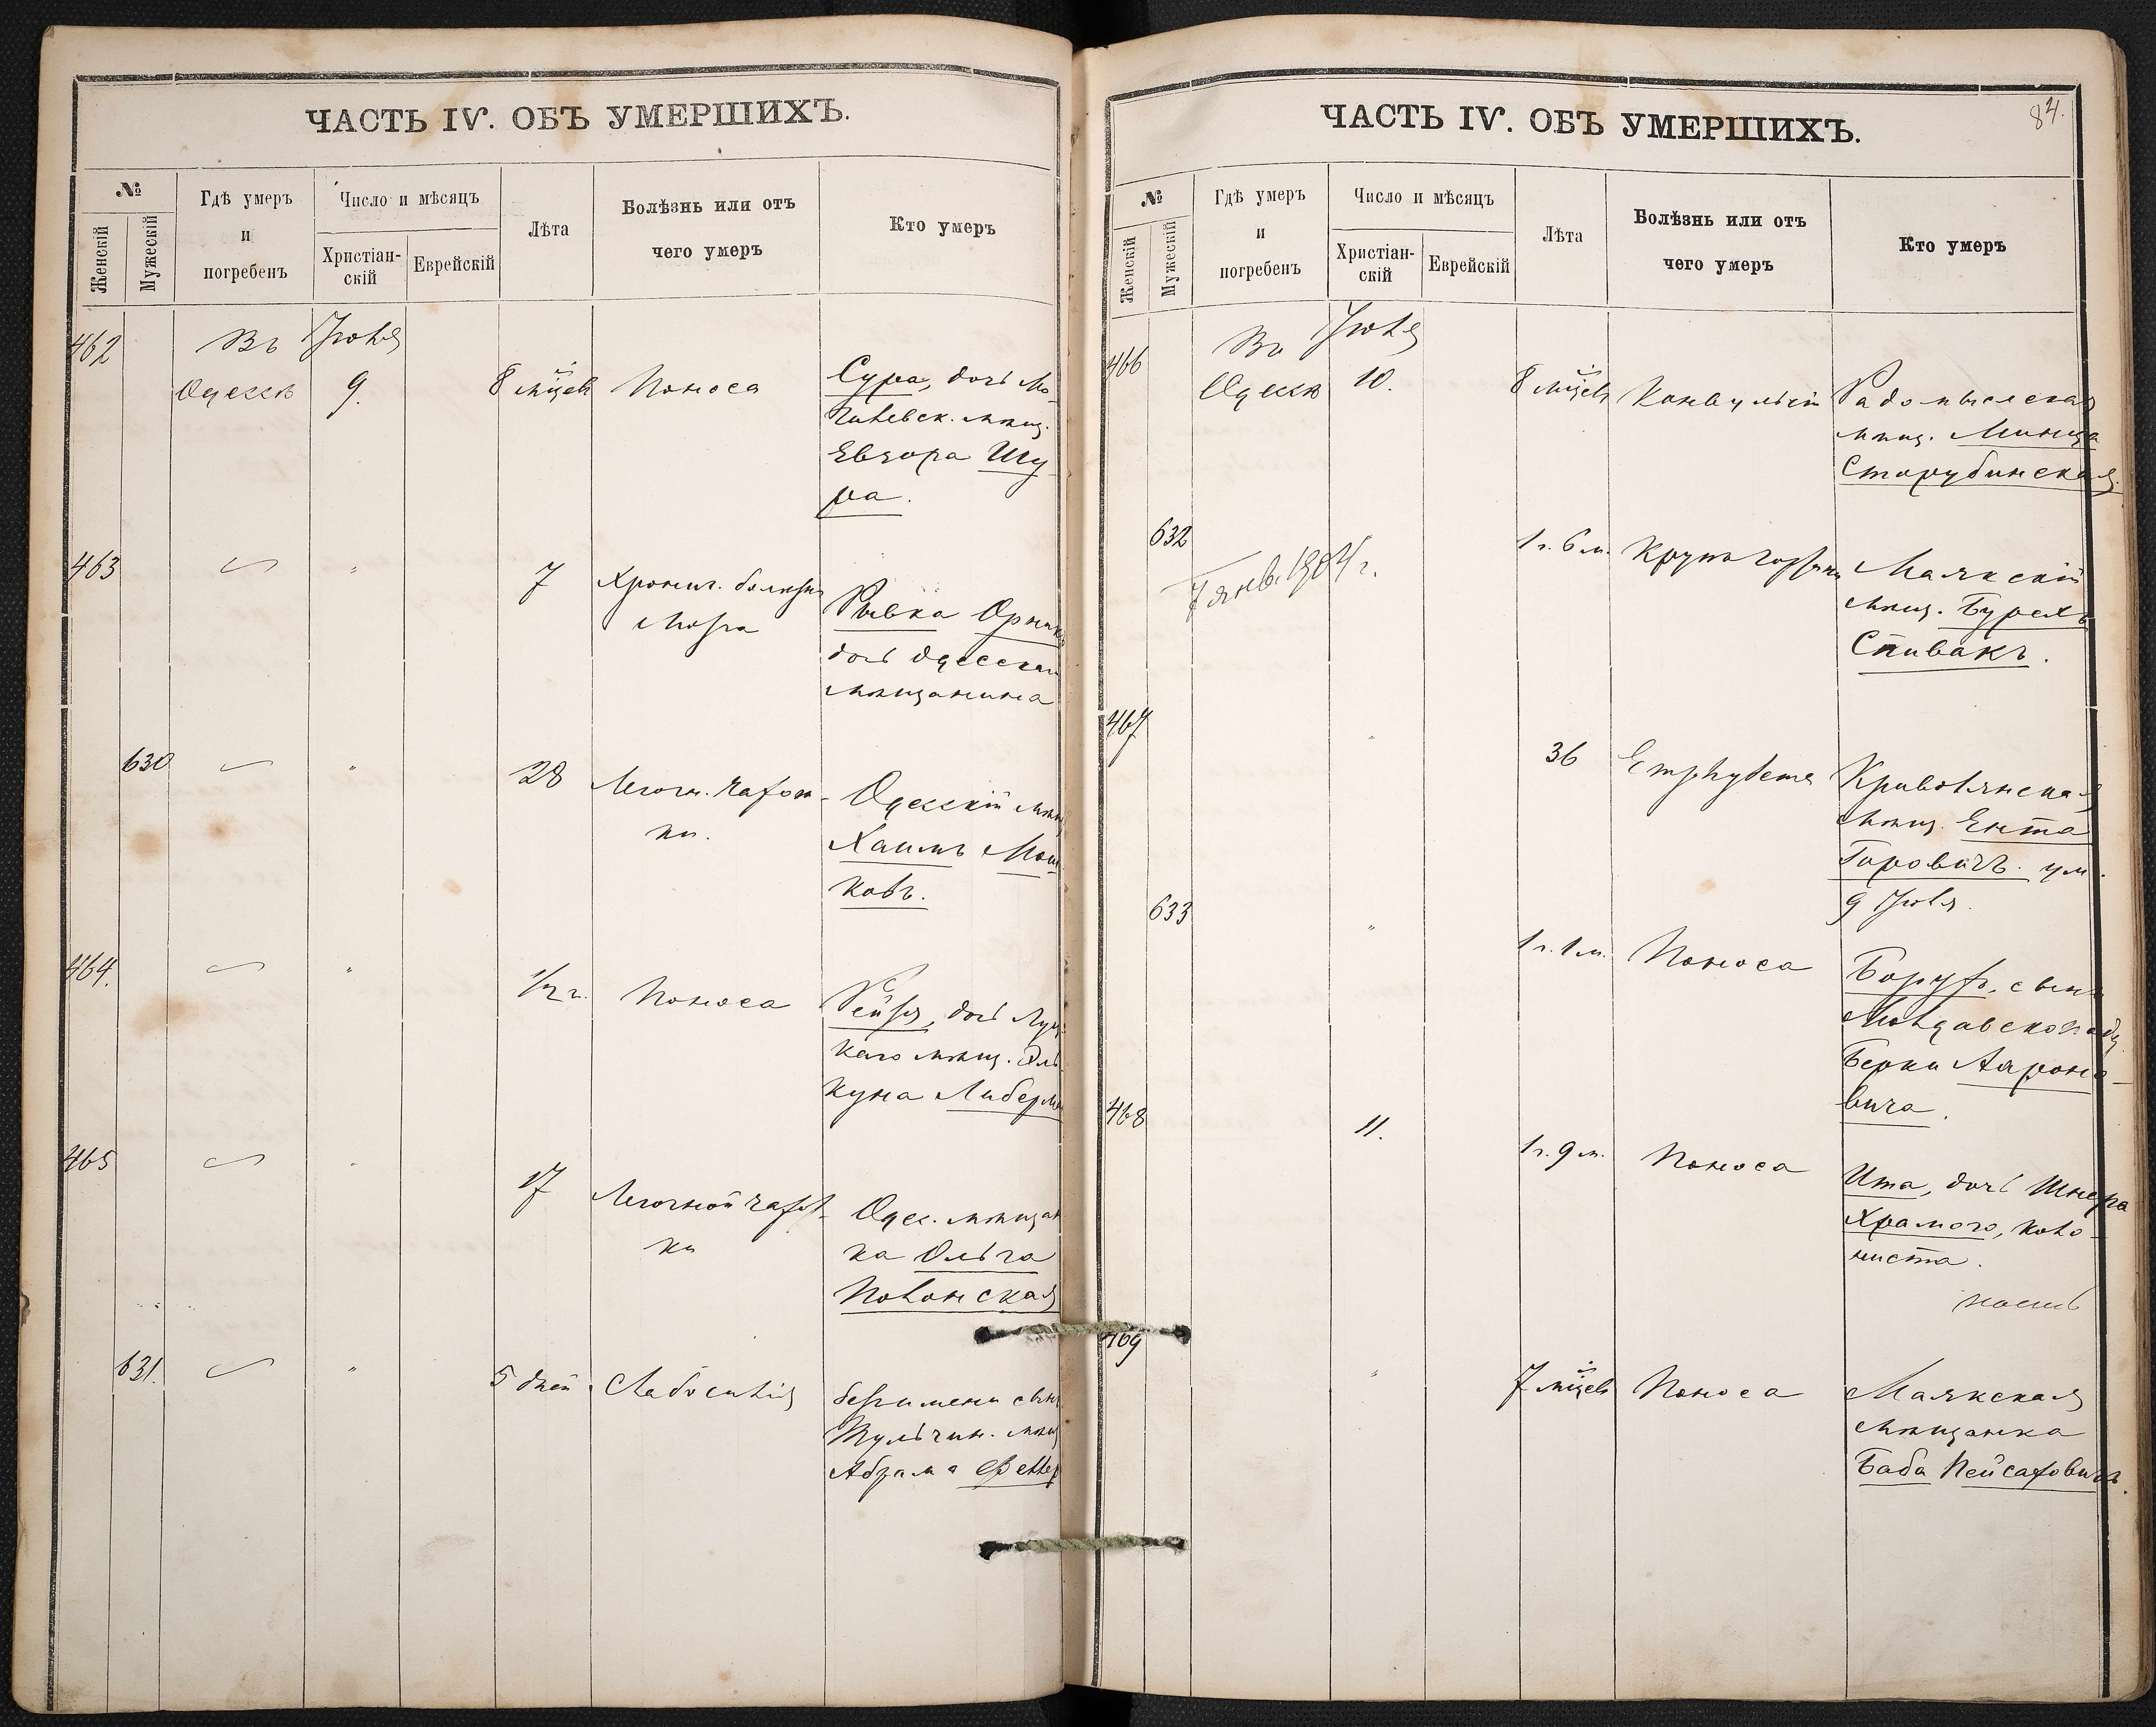 ЧАСТЬ IV. ОБЪ УМЕРШИХЪ.
№
Женскій
Мужескій
Гдѣ умеръ
и
погребенъ
Число и мѣсяцъ
Христіан-
скій
Еврейскій
Лѣта
Болѣзнь или отъ
чего умеръ
Кто умеръ
462
Въ
Одессѣ
Іюля
9.
8 мцевъ
Поноса
Сура, дочь Мо-
гилевск. мѣщ.
Евзора Шу-
ра.
463
"
7
Хронич. болѣзни
Мозга
Рывка
дочь Одесскаго
мѣщанина
630
"
28
Легочн. чахот-
ки.
Одесскій мѣщ
Хаимъ Мош
ковъ.
464.
"
1/2 г.
Поноса
Рейзя, дочь Луц
каго мѣщ.
куна Либерма
465
"
17
Легочной чахот-
ки
Одес. мѣщан
ка Ольга
Полонская
631.
"
5 дней
Слабосилія
безъ имени сынъ
Тульчин. мѣщ
Абрама
ЧАСТЬ IV. ОБЪ УМЕРШИХЪ.
84.
№
Женскій
Мужескій
Гдѣ умеръ
и
погребенъ
Число и мѣсяцъ
Христіан-
скій
Еврейскій
Лѣта
Болѣзнь или отъ
чего умеръ
Кто умеръ
466
Въ
Одессѣ
Іюля
10.
8 мцевъ
Конвульсій
Радомысская
мѣщ. Минца
Старубинская.
632
7 янв. 1904 г.
1 г. 6 м.
Крупъ гортани
Маякскій
мѣщ. Бурехъ
Спивакъ.
467
"
36
Криволянская
мѣщ. Ента
Гировичъ. ум.
9 Іюля.
633
"
1 г. 1 м.
Поноса
Борухъ, сынъ
Молдавскоподд
Берки Аароно-
вича.
468
11.
1 г. 9 м.
Поноса
Ита, дочь Шнера
Храмого, коло-
ниста.
469
"
7 мцевъ
Поноса
Маякская
мѣщанка
Баба Пейсаховичъ.